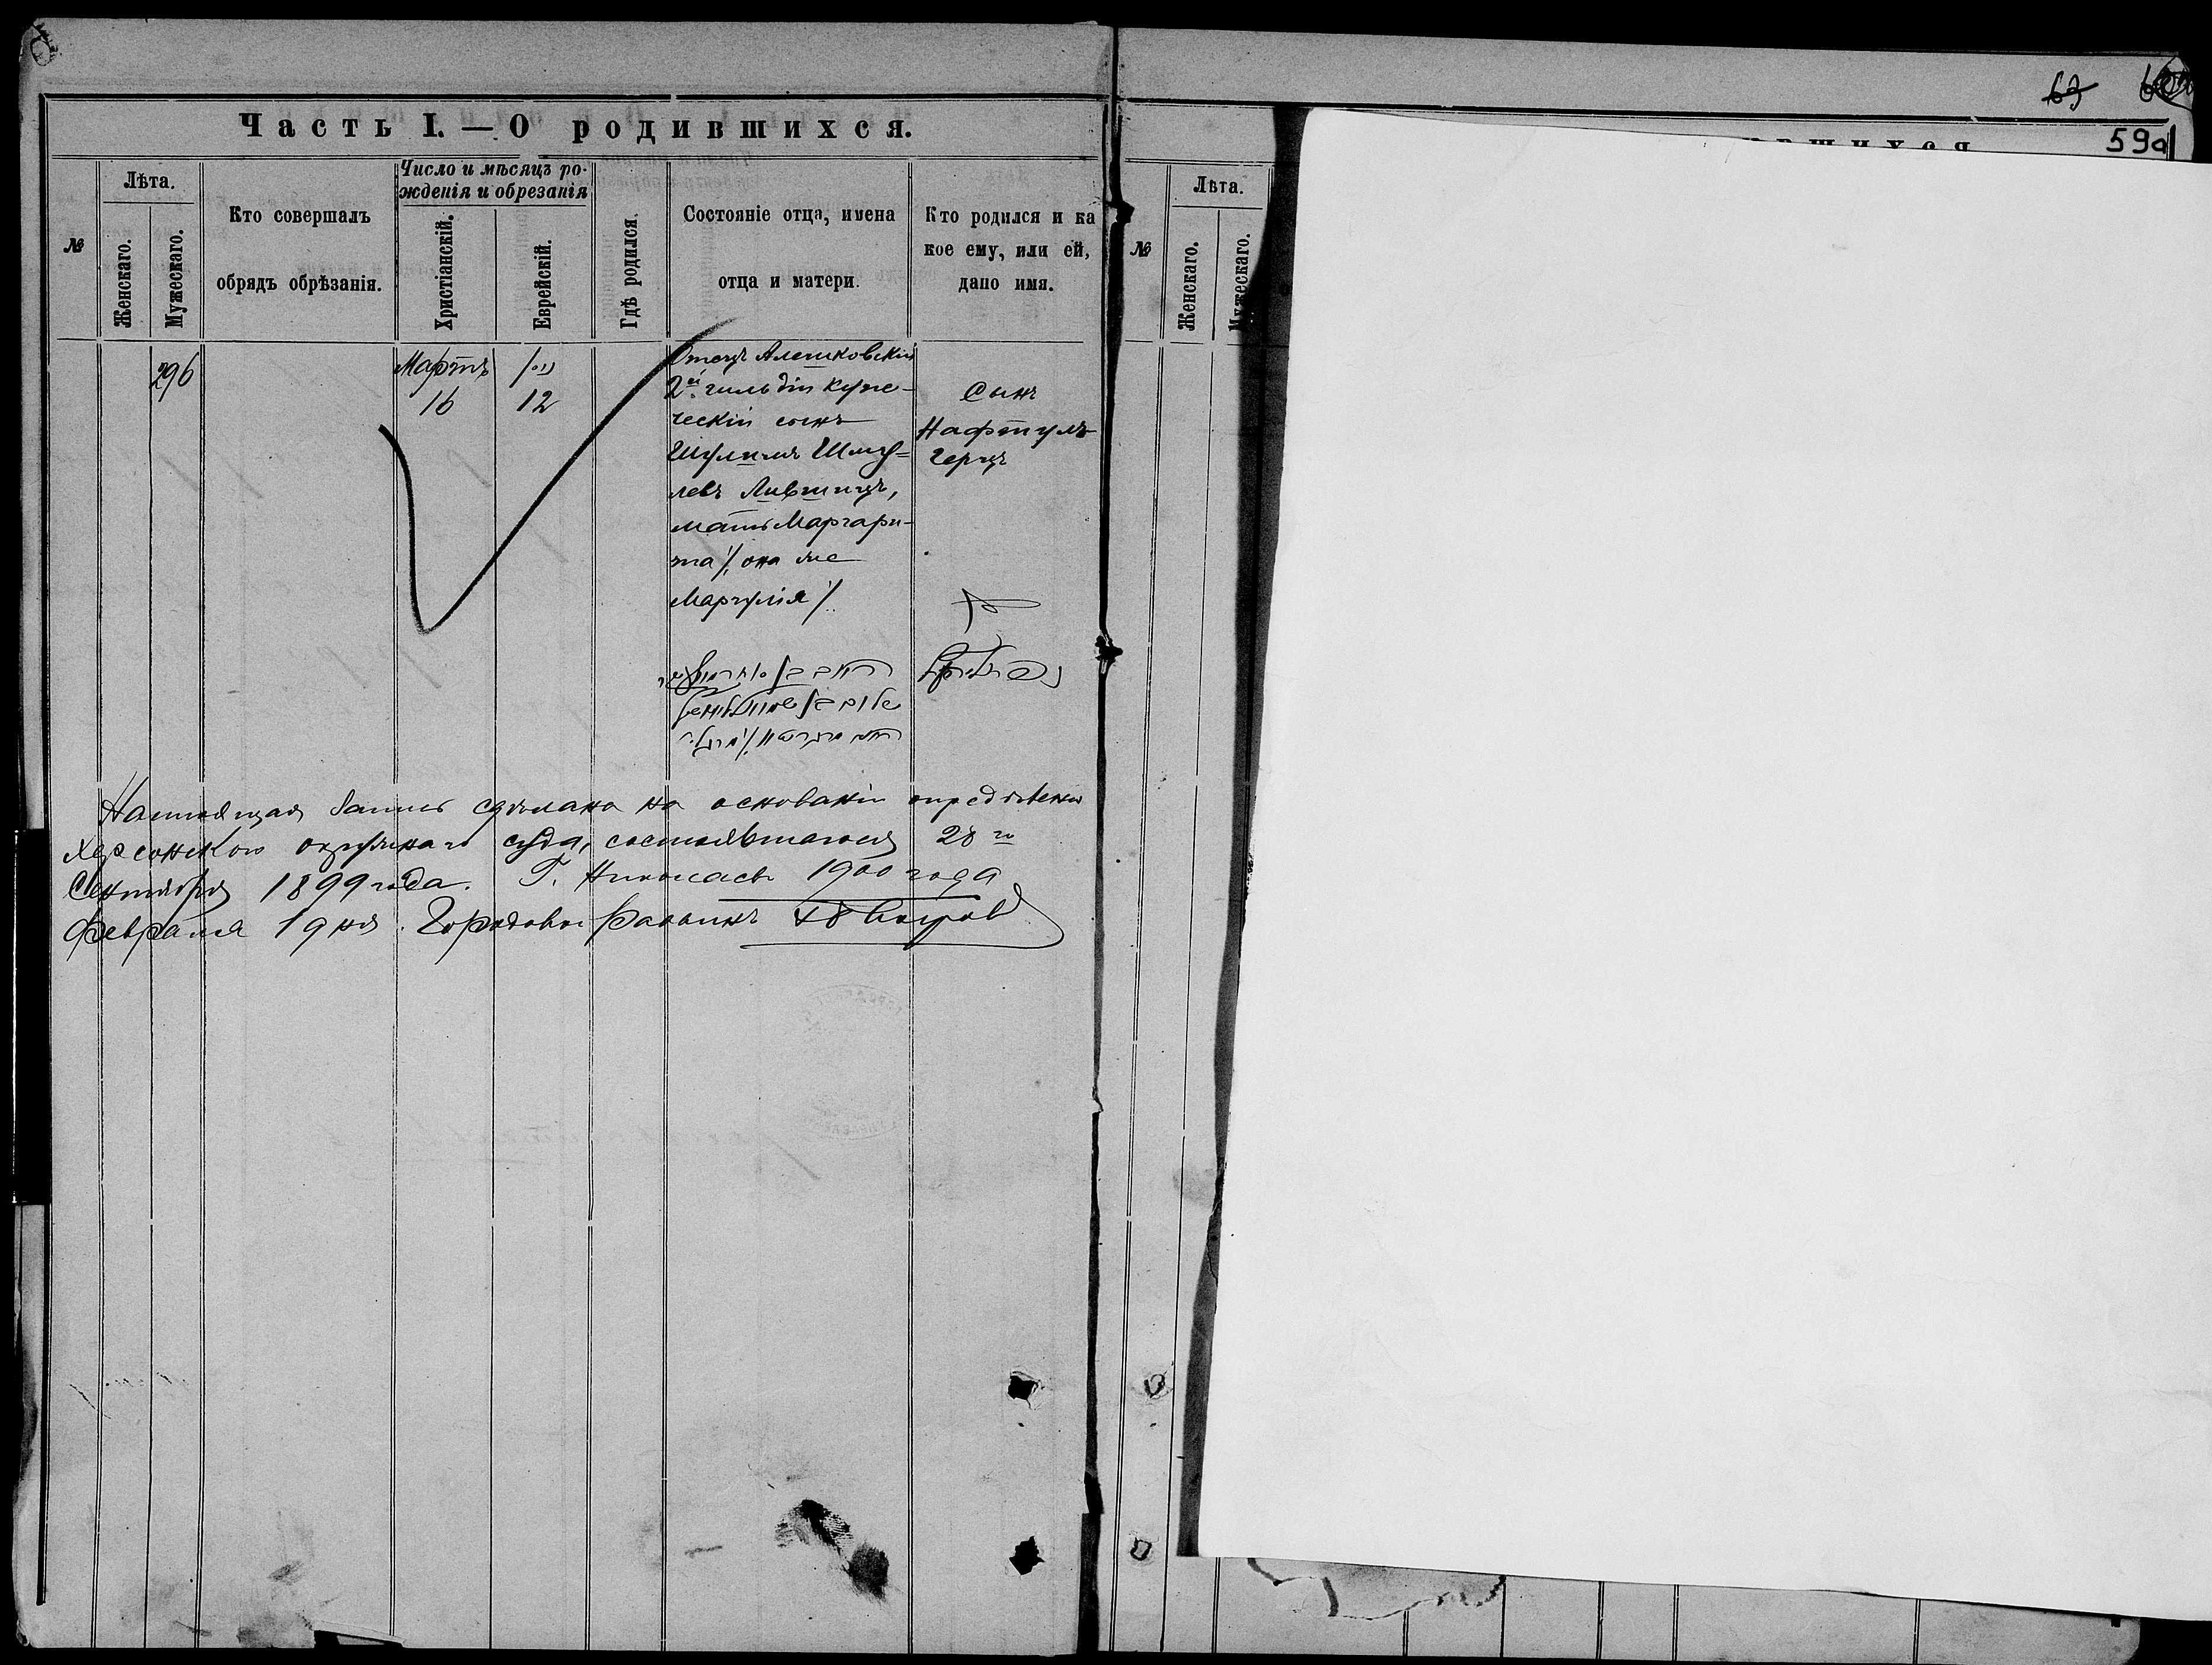 63
59а
Часть I. — О родившихся.
вшихся
№
Лѣта.
Женскаго.
Мужескаго.
Кто совершалъ
обрядъ обрѣзанія.
Число и мѣсяцъ ро-
жденія и обрезанія
Христіанскій.
Еврейскій.
Гдѣ родился.
Состояніе отца, имена
отца и матери.
Кто родился и ка
кое ему, или ей,
дано имя.
№
Лѣта.
Женскаго.
Мужескаго.
296
Мартъ
16
12
Отецъ Алешковскій
2й гильдіи купе-
ческій сынъ
Шулимъ Шму-
левъ Лившицъ,
мать Маргари-
та /: она же
Маргулія /:
Сынъ
Нафтулъ
Герцъ
Настоящая запись сдѣлана на основаніи опредѣленія
Херсонскаго окружнаго суда, состоявшагося 28го
Сентября 1899 года. Г. Николаевъ 1900 года
Февраля 19 дня. Городовой Раввинъ